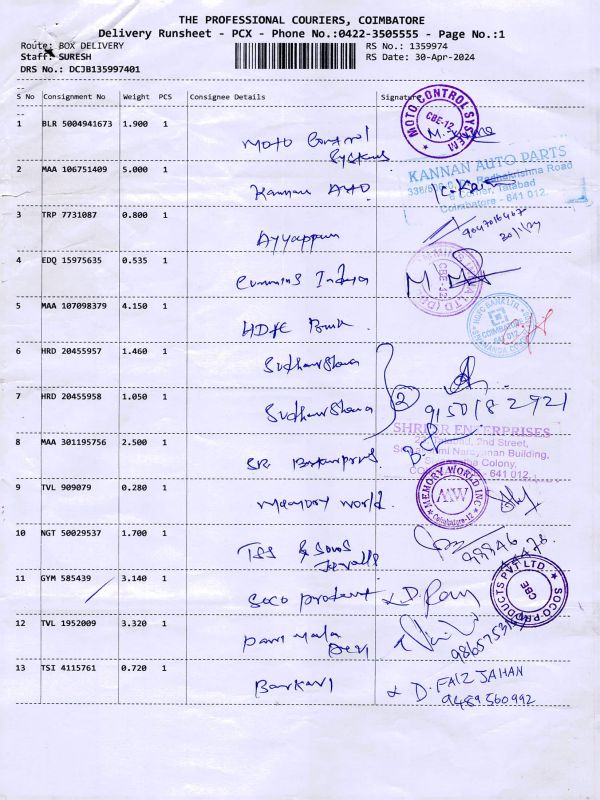 THE PROFESSIONAL COURIERS, COIMBATORE
Delivery Runsheet - PCX - Phone No.:0422-3505555 - Page No.:1
Route: BOX DELIVERY RS No.: 1359974
Staff: SURESH RS Date: 30-Apr-2024
DRS No.: DCJB135997401
S No Consignment No Weight PCS Consignee Details Signature
1 BLR 5004941673 1.900 1 Moto Control Systems MOTO CONTROL SYSTEM CBE-12
2 MAA 106751409 5.000 1 Kannan Auto KANNAN AUTO PARTS
Radhakrishna Road
Tatabad
Coimbatore - 641 012
3 TRP 7731087 0.800 1 Ayyappan
4 EDQ 15975635 0.535 1 Cummins India
5 MAA 107098379 4.150 1 HDFC Bank HDFC BANK LTD COIMBATORE 641 012
6 HRD 20455957 1.460 1
7 HRD 20455958 1.050 1 2 9150182921
8 MAA 301195756 2.500 1 ENTERPRISES
2nd Street,
Narayanan Building,
Colony,
641 012
9 TVL 909079 0.280 1 Memory World MEMORY WORLD INC MW Coimbatore-12
10 NGT 50029537 1.700 1 TSS & Sons
11 GYM 585439 3.140 1 Soco Product SOCO PRODUCTS PVT LTD CBE
12 TVL 1952009 3.320 1 Devi
13 TSI 4115761 0.720 1 D. FAIZ JAHAN
9489560992